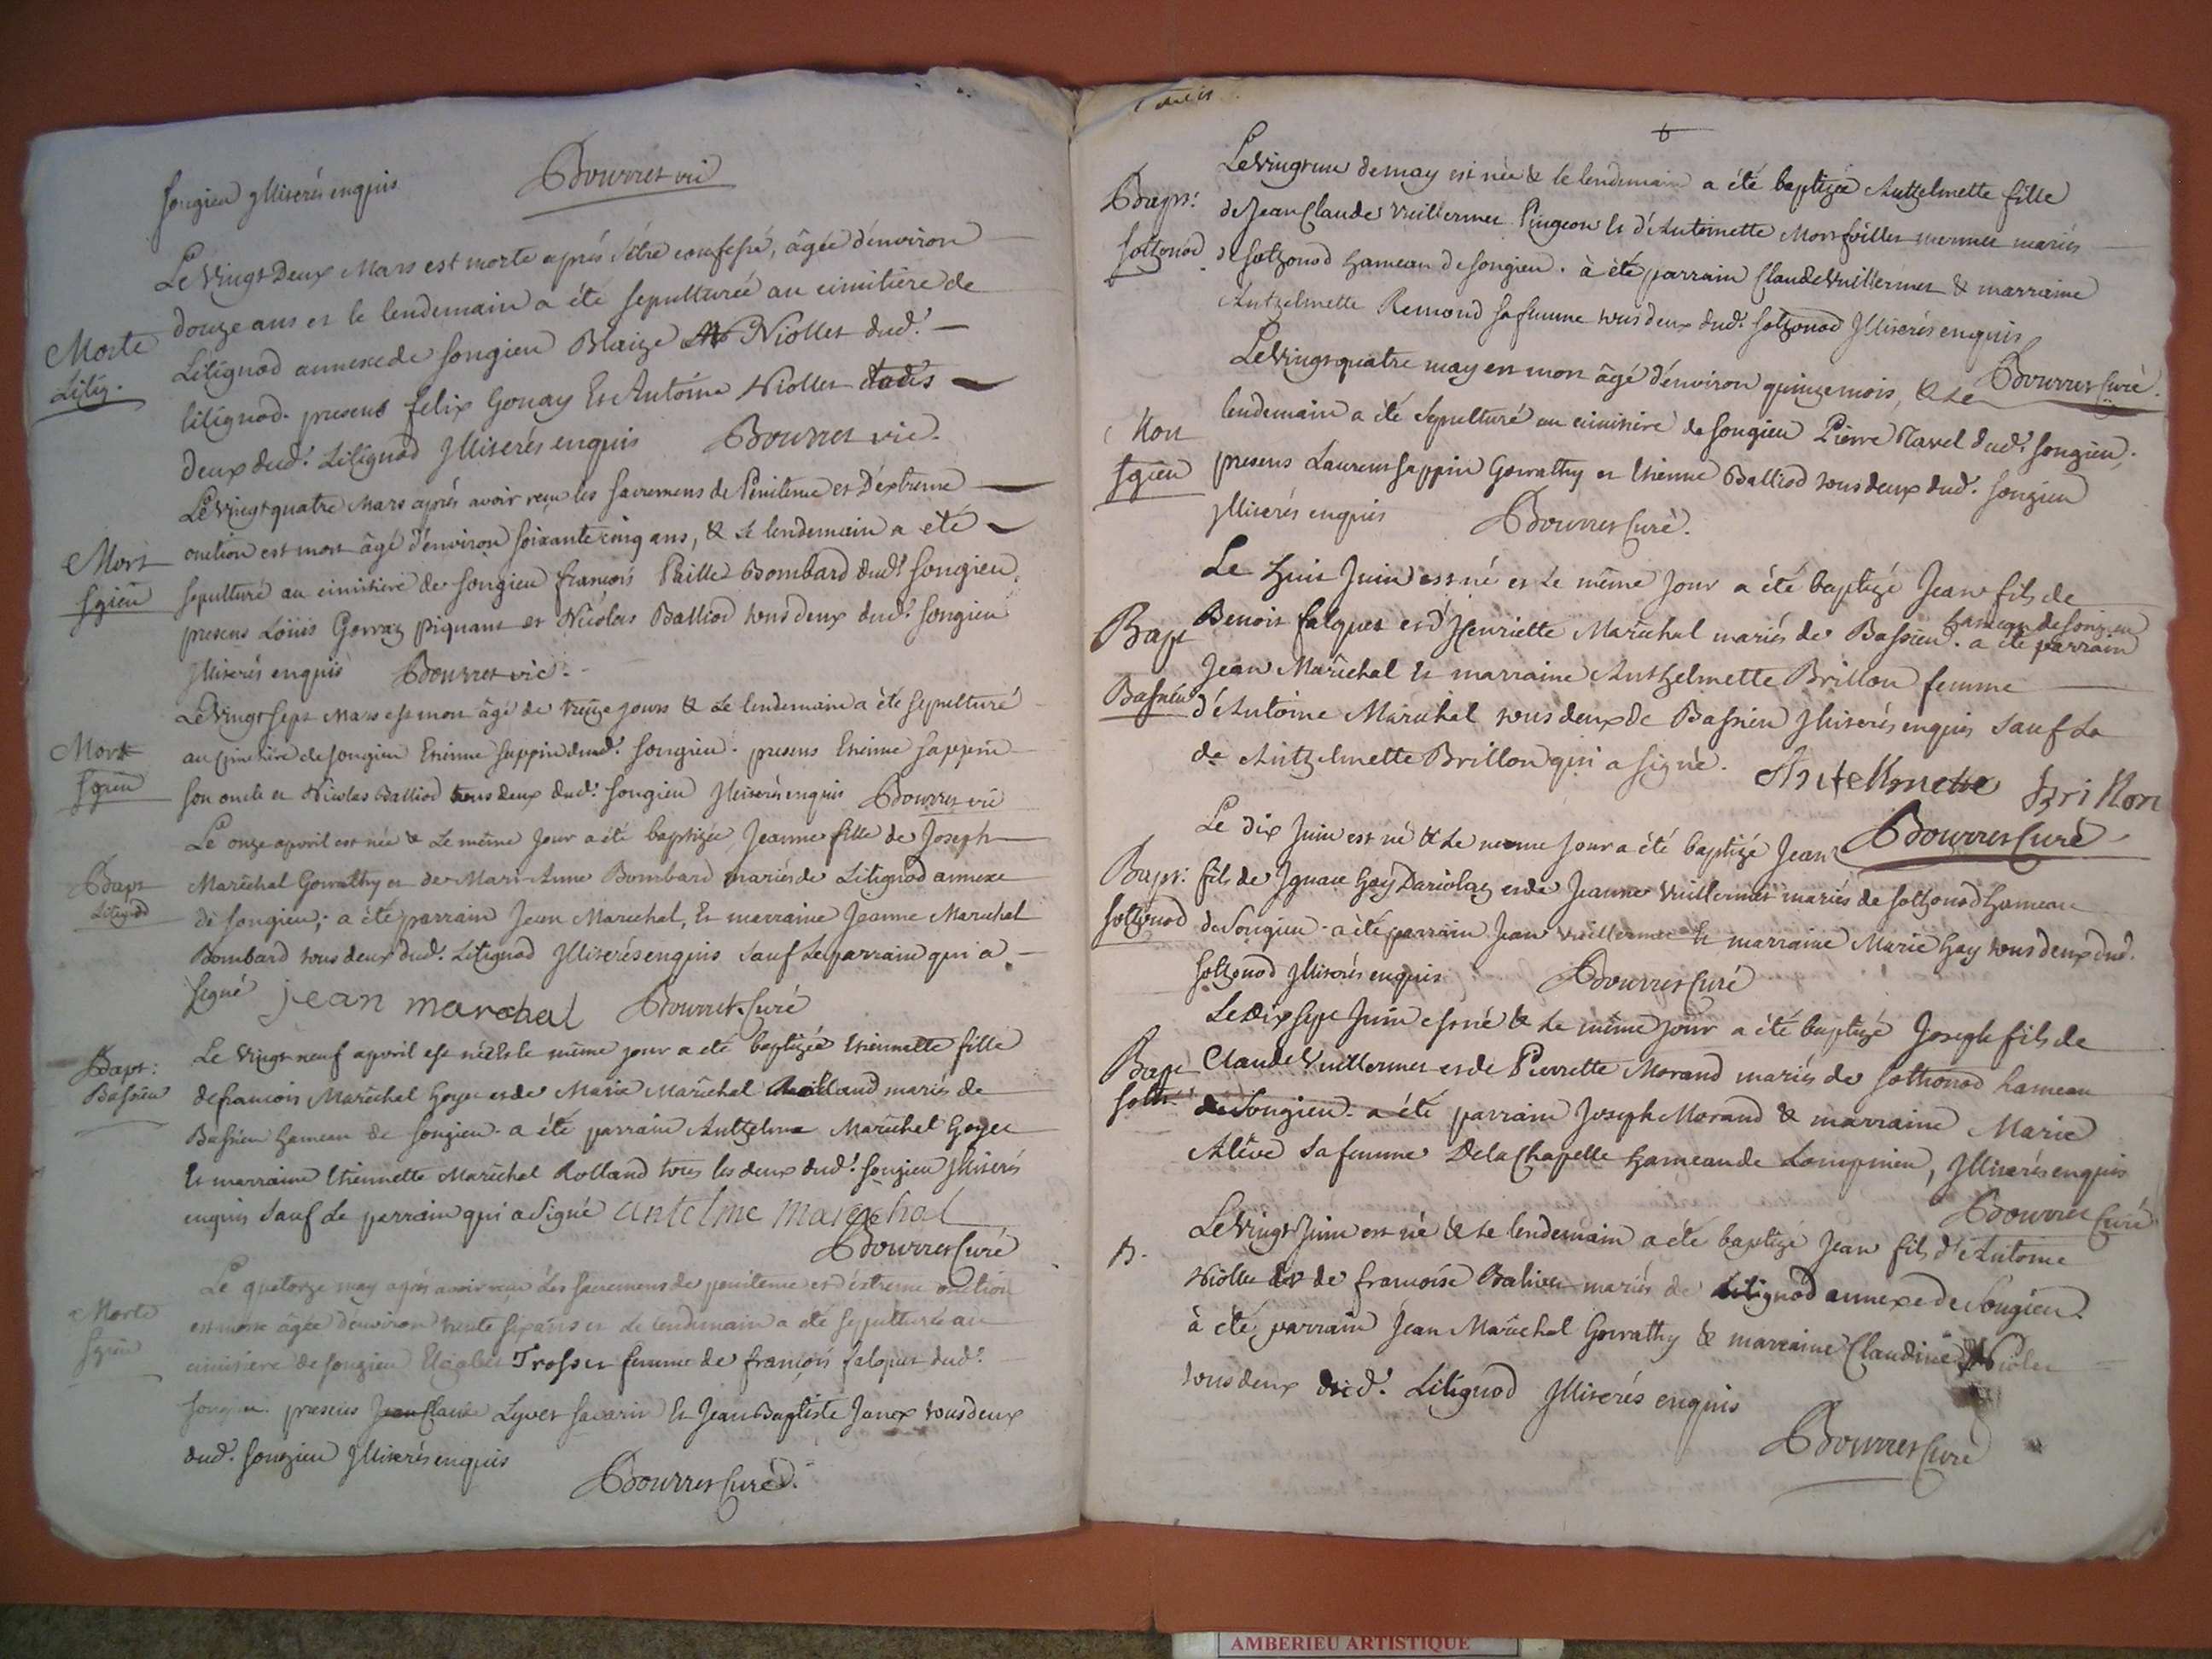 Songieu Illiterés enquis Bourret vic
Le Vingt Deux Mars est morte aprés s'être confessé, âgée d'environ
douze ans et le lendemain a été sepulturée au cimitiere de
Morte
Litig.
Litignod annexe de Songieu Blaize Niollet dud.t
litignod. presens felix Gonay Et Antoine Niollet tous
deux dud.t Litignod Illiterés enquis Bourret vic.
Le Vingt quatre Mars aprés avoir reçu les sacremens de Penitence et D'extreme
Mort
Sgieu
onction est mort âgé d'environ soixante cinq ans, & Le lendemain a été
sepulturé au cimitiere de Songieu françois Paillet Bombard dud.t Songieu.
presens Loüis Gorraz piquant et Nicolas Balliod tous deux dud.t Songieu
Illiterés enquis Bourret vic.
Le Vingt sept Mars est mort âgé de treize jours & Le lendemain a été sepulturé
Mort
Sgieu
au cimitiere de Songieu Etienne Sappin dud.t Songieu. presens Etienne Sappin
son oncle et Nicolas Balliod tous deux dud.t Songieu Illiterés enquis Bourret vic
Le onze apvril est née & Le même jour a été baptizée Jeanne fille de Joseph
Bapt
Litignod
Maréchal Gorrathy et de Marie Anne Bombard mariés de Litignod annexe
de Songieu; a été parrain Jean Marechal, Et marraine Jeanne Marechal
Bombard tous deux dud.t Litignod Illiterés enquis Sauf Le parrain qui a
signé jean marechal Bourret Curé
Le Vingt neuf apvril est née & le même jour a été baptizée Etiennette fille
Bapt:
Bassieu
de françois Maréchal Goyet et de Marie Maréchal Rolland mariés de
Bassieu hameau de Songieu. a été parrain Anthelme Maréchal Goyet
Et marraine Etiennette Maréchal Rolland tous les deux dud.t Songieu Illiterés
enquis Sauf Le parrain qui a signé antelme marechal
Bourret Curé
Le quatorze may aprés avoir reçu les sacremens de penitence et d'extreme onction
Morte
Sgieu
est morte âgée d'environ trente six ans et le lendemain a été sepulturée au
cimitiere de Songieu Trosset femme de françois falquet dud.t
Songieu. presens Jean Claude Lyvet Savarin Et Jean Baptiste Janex tous deux
dud.t Songieu Illiterés enquis
Bourret Curé.
6
Le Vingt un de may est née & le lendemain a été baptizée Anthelmette fille
Bapt:
Sothonod
de Jean Claude Vuillermet Pingeon Et d'Antoinette Montfoillet mermet mariés
de Sothonod hameau de Songieu. à été parrain Claude Vuillermet & marraine
Anthelmette Remond sa femme tous deux dud.t Sothonod Illiterés enquis
Bourret Curé.
Le Vingt quatre may est mort âgé d'environ quinze mois, & Le
Mort
Sgieu
lendemain a été sepulturé au cimitiere de Songieu Pierre Navel dud.t Songieu.
presens Laurent Sappin Gorrathy et Etienne Balliod tous deux dud.t Songieu
Illiterés enquis Bourret Curé.
Le huit Juin est né et Le même jour a été baptizé Jean fils de
Bapt
Bassieu
Benoit falquet et d'Henriette Maréchal mariés de Bassieu hameau de Songieu. a été parrain
Jean Maréchal Et marraine Anthelmette Brillon femme
d'Antoine Maréchal tous deux de Bassieu Illiterés enquis Sauf La
de Anthelmette Brillon qui a signé. Antellmette brillon
Bourret Curé
Le dix Juin est né & Le meme jour a été baptizé Jean
Bapt:
Sothonod
fils de Ignace Gay Dariolaz et de Jeanne Vuillermet mariés de Sothonod hameau
de Songieu. a été parrain Jean Vuillermet Et marraine Marie Gay tous deux dud.
Sothonod Illiterés enquis Bourret Curé
Le Dix sept Juin est né & Le même jour a été baptizé Joseph fils de
Bapt
Soth
Claude Vuillermet et de Pierrette Morand mariés de Sothonod hameau
de Songieu. a été parrain Joseph Morand & marraine Marie
Aléve Sa femme De la Chapelle hameau de Lompnieu, Illiterés enquis
Bourret Curé
Le Vingt Juin est né & Le lendemain a été baptizé Jean fils d'Antoine
B.
Niollet et de françoise Balivet mariés de Litignod annexe de Songieu.
à été parrain Jean Maréchal Gorrathy & marraine Claudine Niolet
tous deux dud.t Litignod Illiterés enquis
Bourret Curé
AMBERIEU ARTISTIQUE